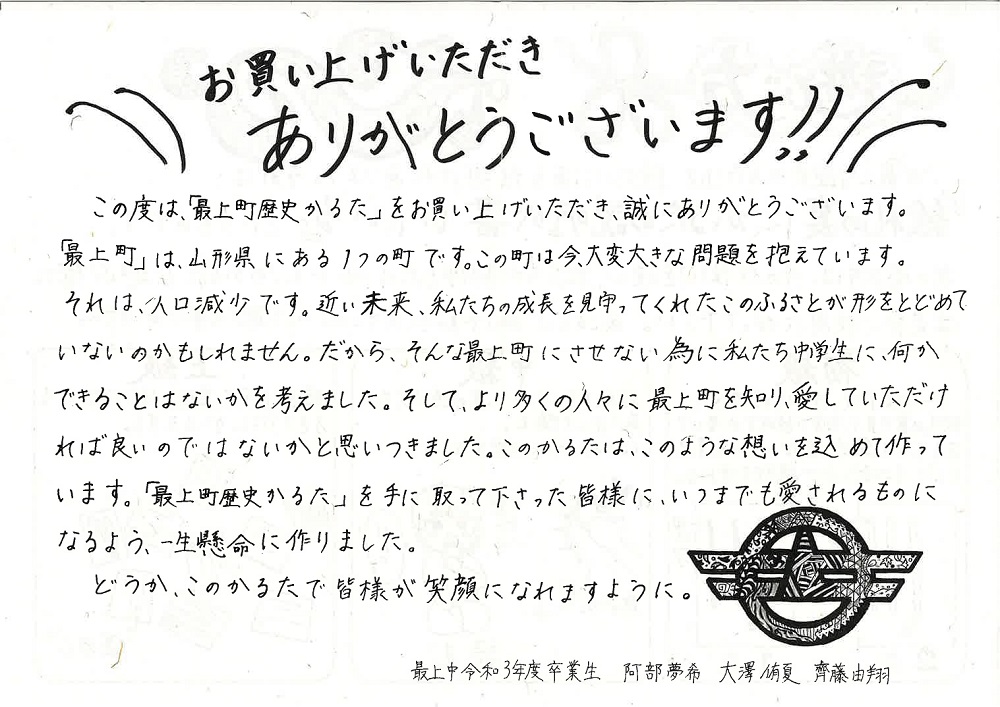 お買い上げいただき
ありがとうございます!!
この度は、「最上町歴史かるた」をお買い上げいただき、誠にありがとうございます。
「最上町」は、山形県にある1つの町です。この町は今、大変大きな問題を抱えています。
それは、人口減少です。近い未来、私たちの成長を見守ってくれたこのふるさとが形をとどめて
いないのかもしれません。だから、そんな最上町にさせない為に私たち中学生に、何か
できることはないかを考えました。そして、より多くの人々に最上町を知り、愛していただけ
れば良いのではないかと思いつきました。このかるたは、このような想いを込めて作って
います。「最上町歴史かるた」を手に取って下さった皆様に、いつまでも愛されるものに
なるよう、一生懸命に作りました。
どうか、このかるたで皆様が笑顔になれますように。
最上中令和3年度卒業生 阿部夢希 大澤侑夏 齊藤由翔